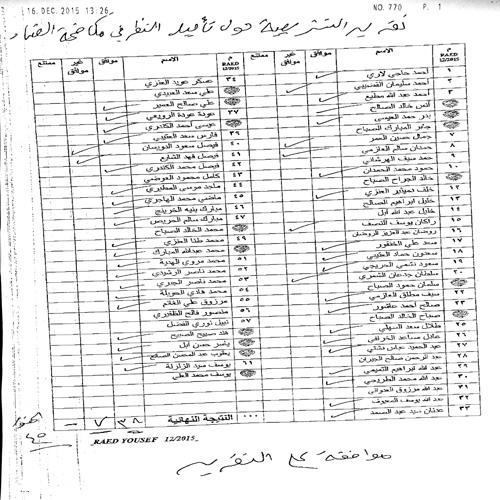 16. DEC. 2015 13:26
NO. 770 P. 1
م RAED 12/2015 الاسم موافق غير موافق ممتنع
١ احمد حاجي لاري
٢ احمد سليمان القضيبي
٣ احمد عبد الله مطيع
انس خالد الصالح
بدر حمد العيسى
جابر المبارك الصباح
٧ جمال حسين العمر
٨ حمدان سالم العازمي
٩ حمد سيف الهرشاني
١٠ حمود محمد الحمدان
خالد الجراح الصباح
١٢ خلف دميثير العنزي
١٣ خليل ابراهيم الصالح
١٤ خليل عبد الله ابل
١٥ راكان يوسف النصف
١٦ روضان عبد العزيز الروضان
١٧ سعد علي الخنفور
١٨ سعدون حماد العتيبي
١٩ سعود نشمي الحريجي
٢٠ سلطان جدعان الشمري
سلمان حمود الصباح
سيف مطلق العازمي
٢٣ صالح احمد عاشور
صباح الخالد الصباح
٢٥ طلال سعد السهلي
٢٦ عادل مساعد الخرافي
٢٧ عبد الحميد عباس دشتي
٢٨ عبد الرحمن صالح الجيران
٢٩ عبد الله ابراهيم التميمي
٣٠ عبد الله محمد الطريجي
٣١ عبد الله مرزوق العدواني
٣٢ عبد الله يوسف المعيوف
٣٣ عدنان سيد عبد الصمد
م RAED 12/2015 الاسم موافق غير موافق ممتنع
٣٤ عسكر عويد العنزي
علي سعد العبيدي
علي صالح العمير
٣٧ عودة عودة الرويعي
عيسى احمد الكندري
٣٩ فارس سعد العتيبي
٤٠ فيصل سعود الدويسان
٤١ فيصل فهد الشايع
٤٢ فيصل محمد الكندري
٤٣ كامل محمود العوضي
٤٤ ماجد موسى المطيري
٤٥ ماضي محمد الهاجري
٤٦ مبارك بنيه الخرينج
٤٧ مبارك سالم الحريص
محمد الخالد الصباح
٤٩ محمد طنا العنزي
محمد عبدالله المبارك
٥١ محمد مروي الهدية
٥٢ محمد ناصر الرشيدي
٥٣ محمد ناصر الجبري
٥٤ محمد هادي الحويلة
٥٥ مرزوق علي الغانم
٥٦ منصور فالح الظفيري
٥٧ نبيل نوري الفضل
هند صبيح الصبيح
ياسر حسن ابل
يعقوب عبد المحسن الصانع
٦١ يوسف سيد الزلزلة
يوسف محمد العلي
النتيجة النهائية ٣٨ ٧ -
RAED YOUSEF 12/2015
موافقة على التقرير